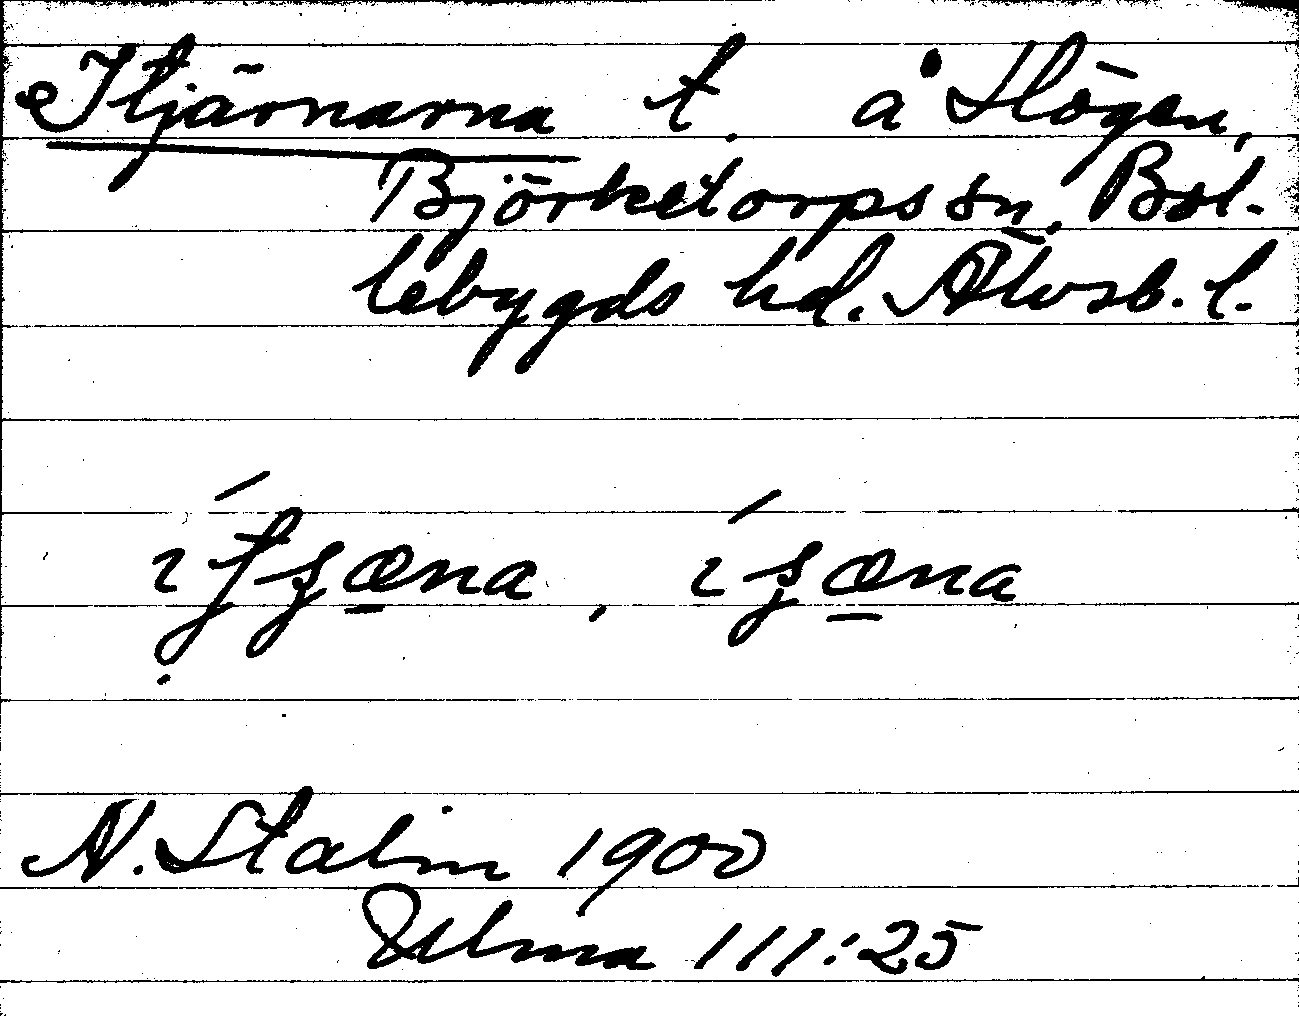 Itjärnarna t. å Högen,
Björketorps sn, Bol-
lebygds hd. Älvsb. l.
N. Stalin 1900
Ulma 111:25